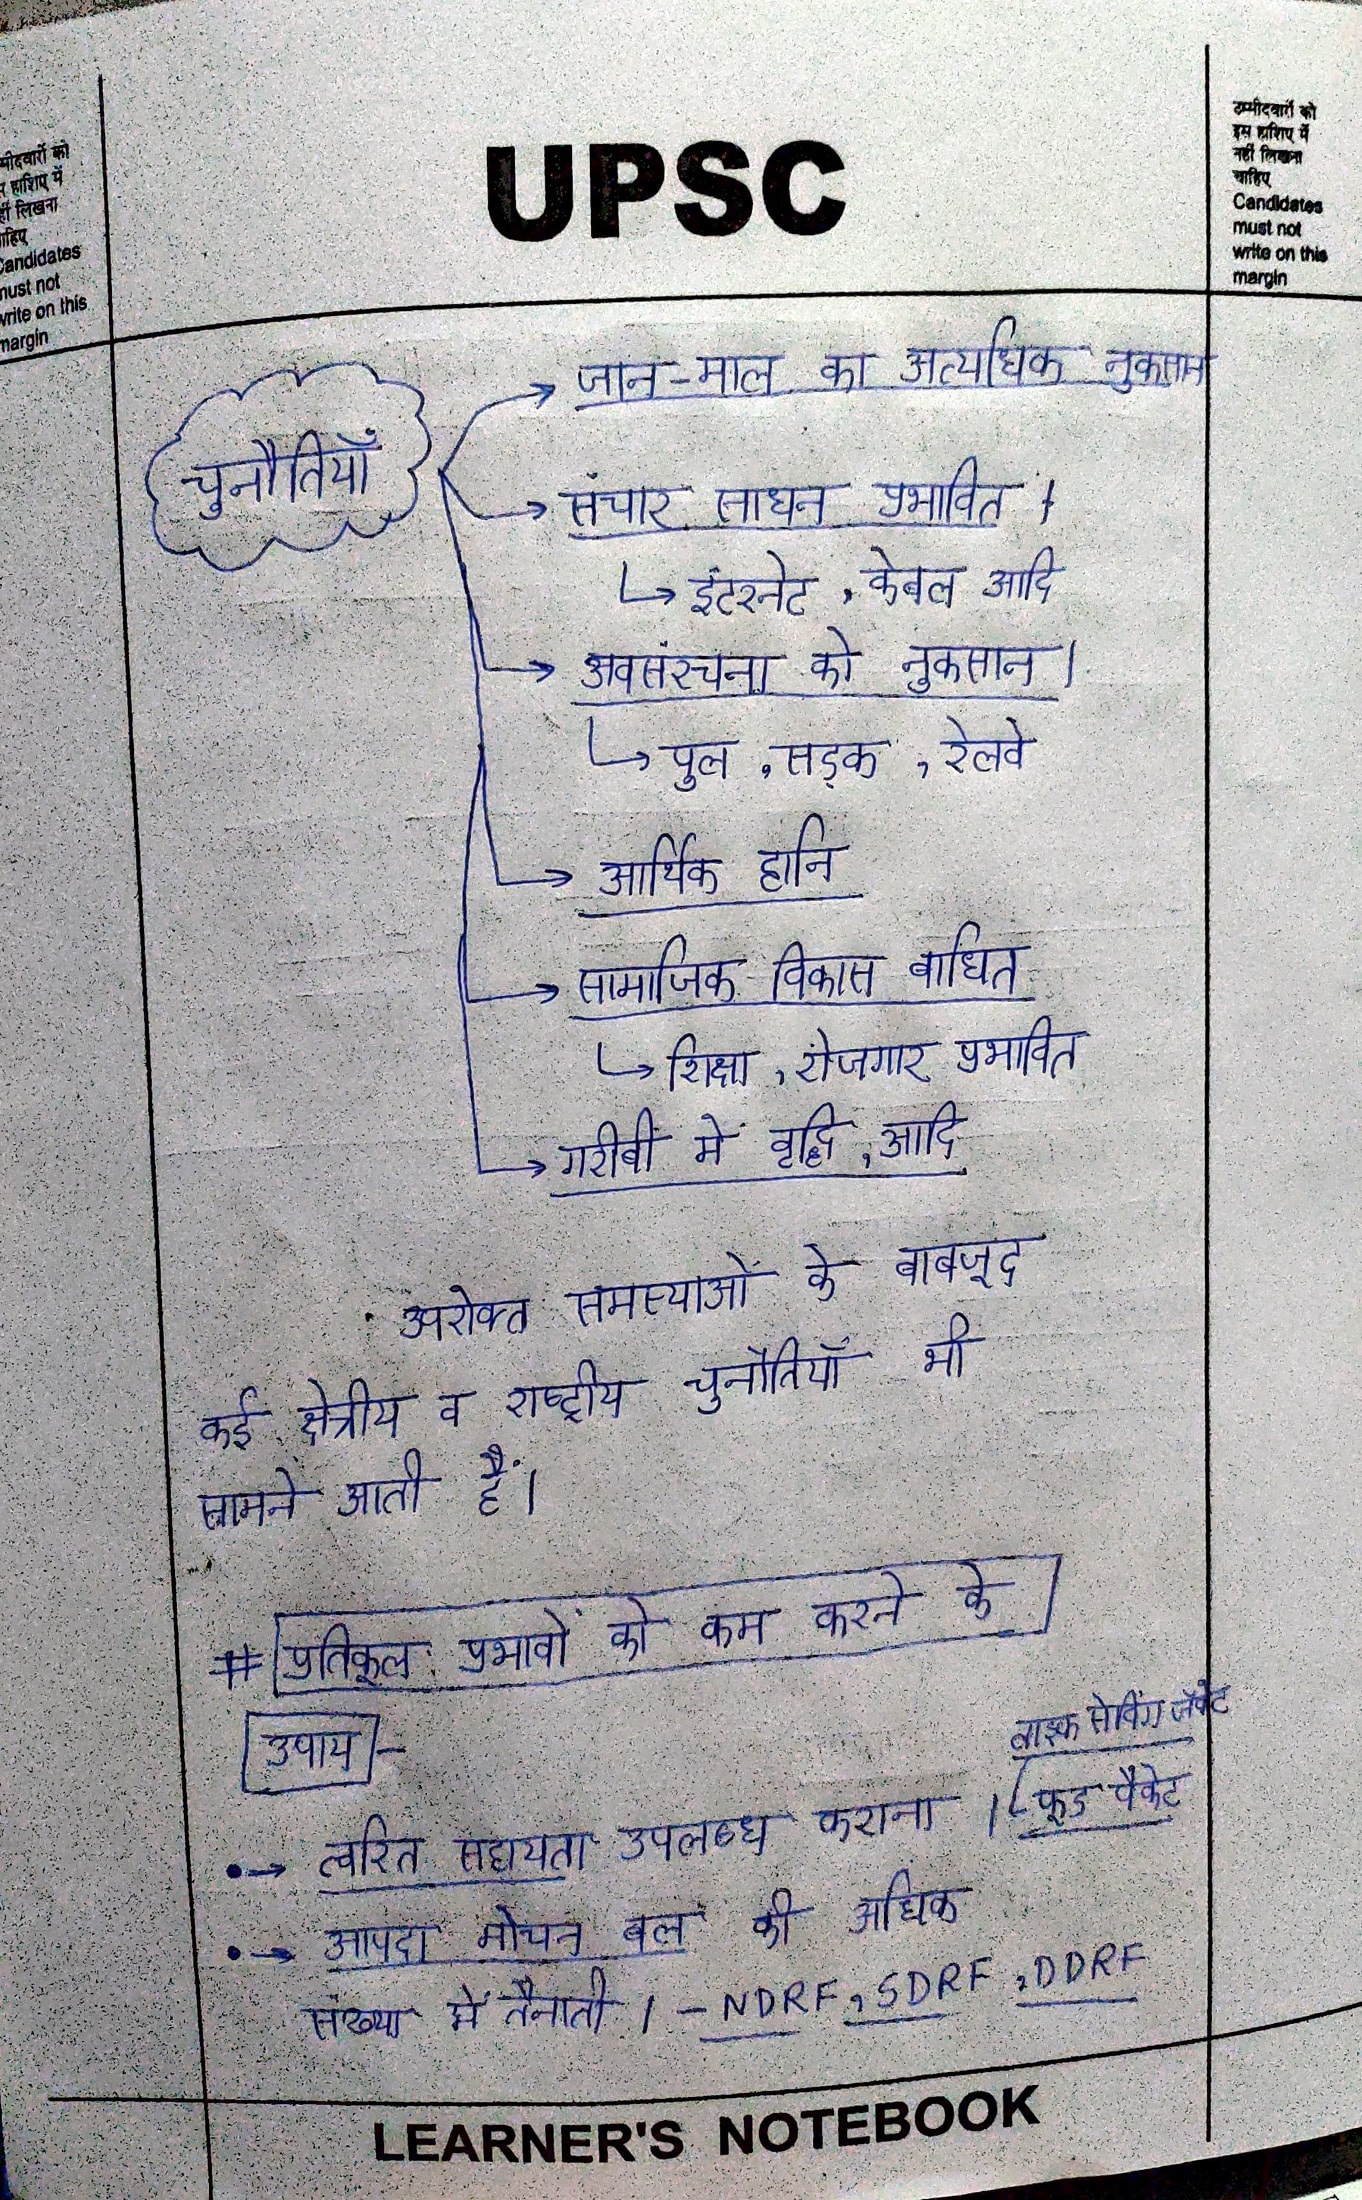 UPSC
उम्मीदवारों को
इस हाशिए में
नहीं लिखना
चाहिए
Candidates
must not
write on this
margin
मीदवारों को
हाशिए में
लिखना
Candidates
must not
write on this
margin
चुनौतियाँ
जान-माल का अत्यधिक नुकसान
संचार साधन प्रभावित ।
इंटरनेट, केबल आदि
अवसंरचना को नुकसान ।
पुल, सड़क, रेलवे
आर्थिक हानि
सामाजिक विकास बाधित
शिक्षा, रोजगार प्रभावित
गरीबी में वृद्धि, आदि
उपरोक्त समस्याओं के बाबजूद
कई क्षेत्रीय व राष्ट्रीय चुनौतियाँ भी
सामने आती हैं।
# प्रतिकूल प्रभावों को कम करने के
उपाय -
सेविंग जैकेट
• → त्वरित सहायता उपलब्ध कराना । फूड पैकेट
• → आपदा मोचन बल की अधिक
संख्या में तैनाती । - NDRF, SDRF, DDRF
LEARNER'S NOTEBOOK